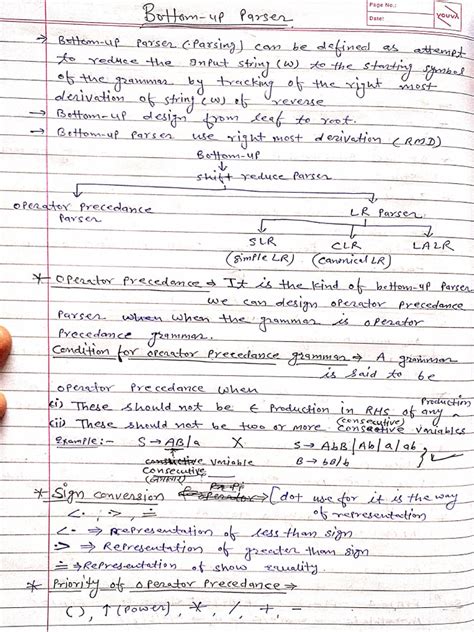 Page No.:
Date:
YOUVA
Bottom-up Parser
→ Bottom-up Parser (Parsing) can be defined as attempt
to reduce the input string (w) to the starting symbol
of the grammar by tracking of the right most
derivation of string (w) of reverse
→ Bottom-up design from leaf to root.
→ Bottom-up Parser use right most derivation (RMD)
Bottom-up
shift reduce Parser
operator Precedance Parser
LR Parser
SLR (Simple LR)
CLR (Canonical LR)
LALR
* Operator Precedance → It is the kind of bottom-up Parser
we can design operator precedance
Parser when when the grammar is operator
Precedance grammar.
Condition for operator Precedance grammar → A grammar
is said to be
operator Precedance when
(i) These should not be ∈ Production in RHS of any Production
(ii) These should not be two or more (consecutive) variables
Example:- S → AB/a X S → AbB | Ab | a | ab,
variable B → bB/b ✓
Consecutive
* Sign conversion → [dot use for it is the way
⋖, ⋗, ≐ of representation
⋖ ⇒ Representation of less than sign
⋗ ⇒ Representation of greater than sign
≐ ⇒ Representation of show equality.
* Priority of operator Precedance ⇒
( ), ↑ (Power), *, /, +, -